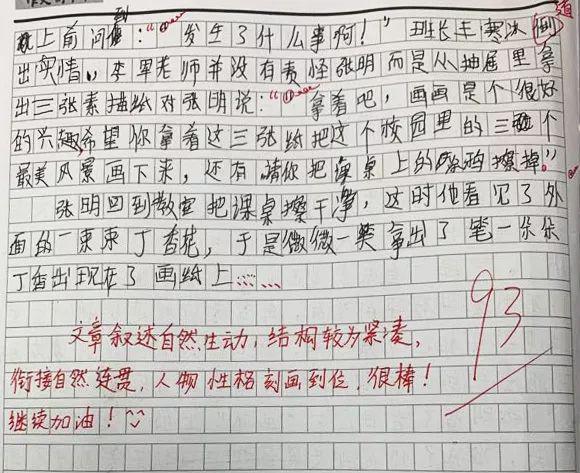 上前问到：“发生了什么事啊！”班长王寒冰道
出实情，李里老师并没有责怪张明而是从抽屉里拿
出三张素描纸对张明说：“拿着吧，画画是个很好
的兴趣，希望你拿着这三张纸把这个校园里的三个
最美风景画下来，还有请你把课桌上的擦掉。”
张明回到教室把课桌擦干净，这时他看见了外
面的一束束丁香花，于是微微一笑拿出了笔一朵朵
丁香出现在了画纸上……
93
文章叙述自然生动，结构较为紧凑，
衔接自然连贯，人物性格刻画到位，很棒！
继续加油！